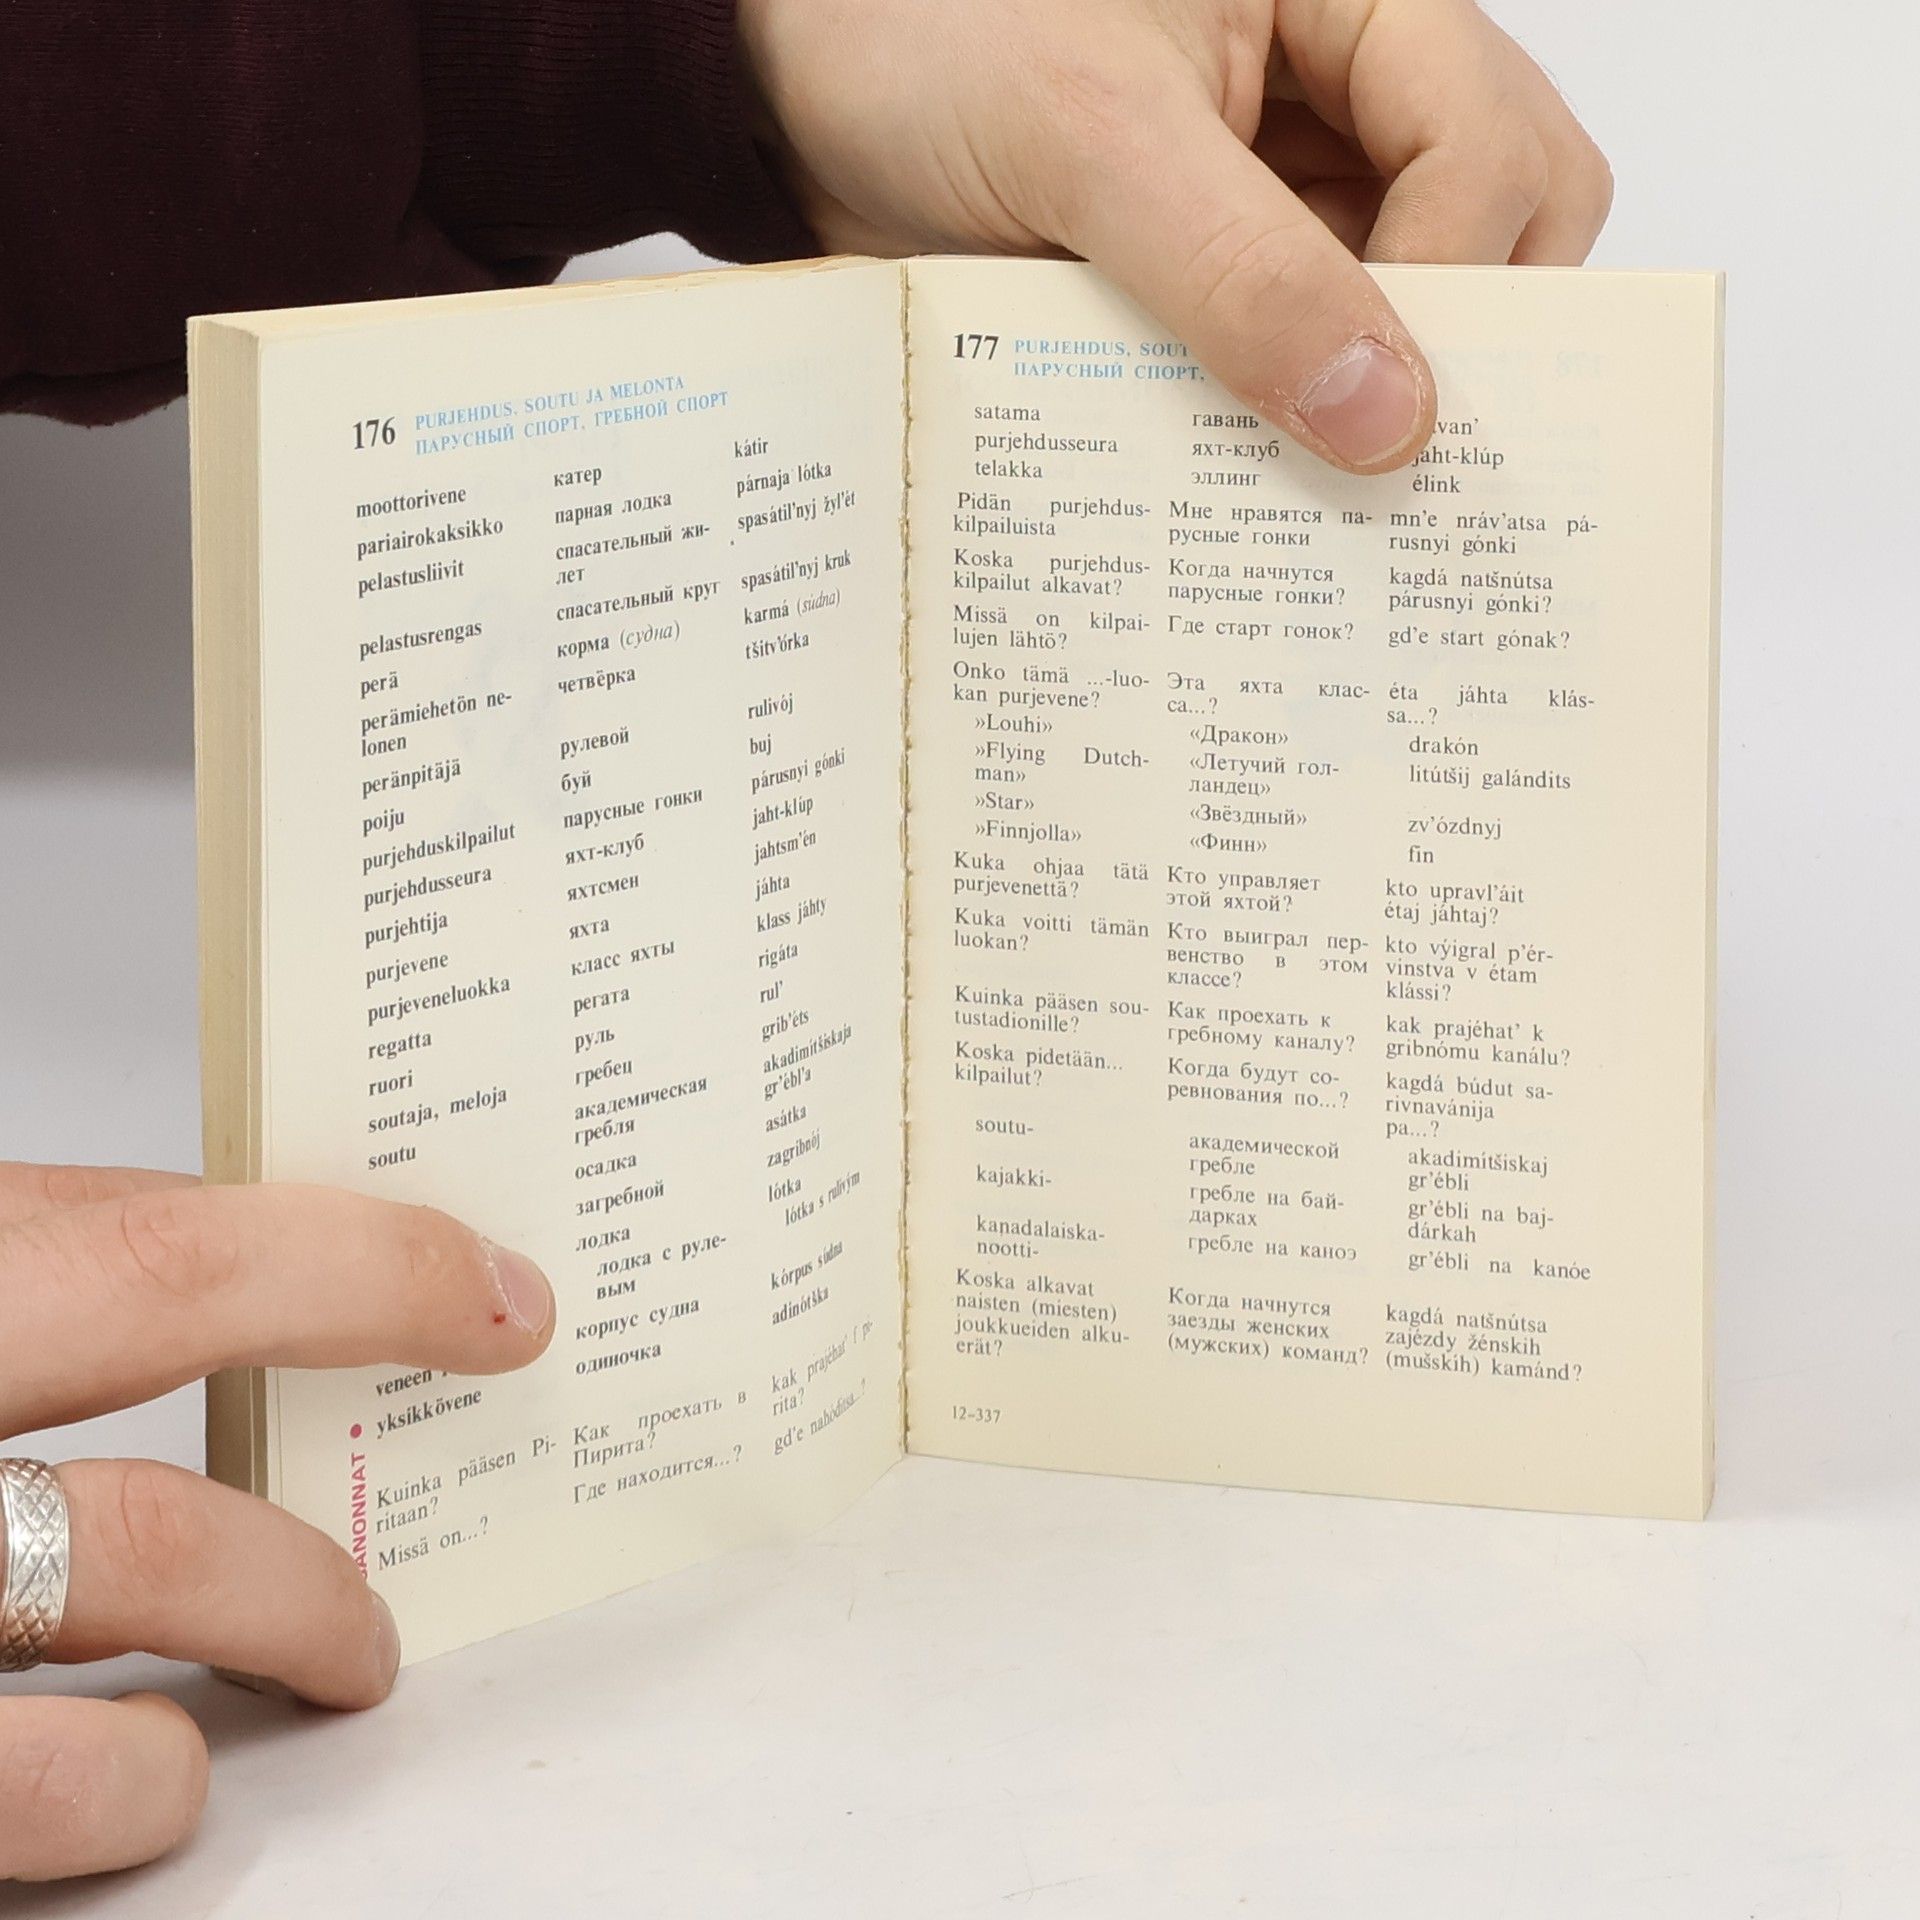 176 PURJEHDUS, SOUTU JA MELONTA
ПАРУСНЫЙ СПОРТ, ГРЕБНОЙ СПОРТ
moottorivene катер kátir
pariairokaksikko парная лодка párnaja lótka
pelastusliivit спасательный жи- spasátil'nyj žyl'ét
лет
pelastusrengas спасательный круг spasátil'nyj kruk
perä корма (судна) karmá (súdna)
perämiehetön ne- четвёрка tšitv'órka
lonen
peränpitäjä рулевой rulivój
poiju буй buj
purjehduskilpailut парусные гонки párusnyi gónki
purjehdusseura яхт-клуб jaht-klúp
purjehtija яхтсмен jahtsm'én
purjevene яхта jáhta
purjeveneluokka класс яхты klass jáhty
regatta регата rigáta
ruori руль rul'
soutaja, meloja гребец grib'éts
soutu академическая akadimítšiskaja
гребля gr'ébl'a
осадка asátka
загребной zagribnój
лодка lótka
лодка с руле- lótka s rulivým
вым
veneen корпус судна kórpus súdna
yksikkövene одиночка adinótška
SANONNAT •
Kuinka pääsen Pi- Как проехать в kak prajéhat' f pi-
ritaan? Пирита? rita?
Missä on...? Где находится...? gd'e nahóditsa...?
177 PURJEHDUS,
ПАРУСНЫЙ СПОРТ,
satama гавань
purjehdusseura яхт-клуб jaht-klúp
telakka эллинг élink
Pidän purjehdus- Мне нравятся па- mn'e nráv'atsa pá-
kilpailuista русные гонки rusnyi gónki
Koska purjehdus- Когда начнутся kagdá natšnútsa
kilpailut alkavat? парусные гонки? párusnyi gónki?
Missä on kilpai- Где старт гонок? gd'e start gónak?
lujen lähtö?
Onko tämä ...-luo- Эта яхта клас- éta jáhta klás-
kan purjevene? са...? sa...?
»Louhi» «Дракон» drakón
»Flying Dutch- «Летучий гол- litútšij galándits
man» ландец»
»Star» «Звёздный» zv'ózdnyj
»Finnjolla» «Финн» fin
Kuka ohjaa tätä Кто управляет kto upravl'áit
purjevenettä? этой яхтой? étaj jáhtaj?
Kuka voitti tämän Кто выиграл пер- kto výigral p'ér-
luokan? венство в этом vinstva v étam
классе? klássi?
Kuinka pääsen sou- Как проехать к kak prajéhat' k
tustadionille? гребному каналу? gribnómu kanálu?
Koska pidetään... Когда будут со- kagdá búdut sa-
kilpailut? ревнования по...? rivnavánija
pa...?
soutu- академической akadimítšiskaj
гребле gr'ébli
kajakki- гребле на бай- gr'ébli na baj-
дарках dárkah
kanadalaiska- гребле на каноэ gr'ébli na kanóe
nootti-
Koska alkavat Когда начнутся kagdá natšnútsa
naisten (miesten) заезды женских zajézdy žénskih
joukkueiden alku- (мужских) команд? (mušskíh) kamánd?
erät?
12-337